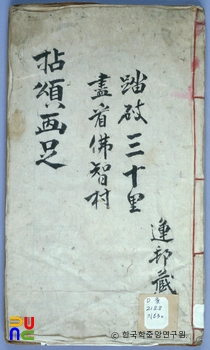 蓮邦藏
踏破三十里
盡省佛智村
拈頌画足
© 한국학중앙연구원